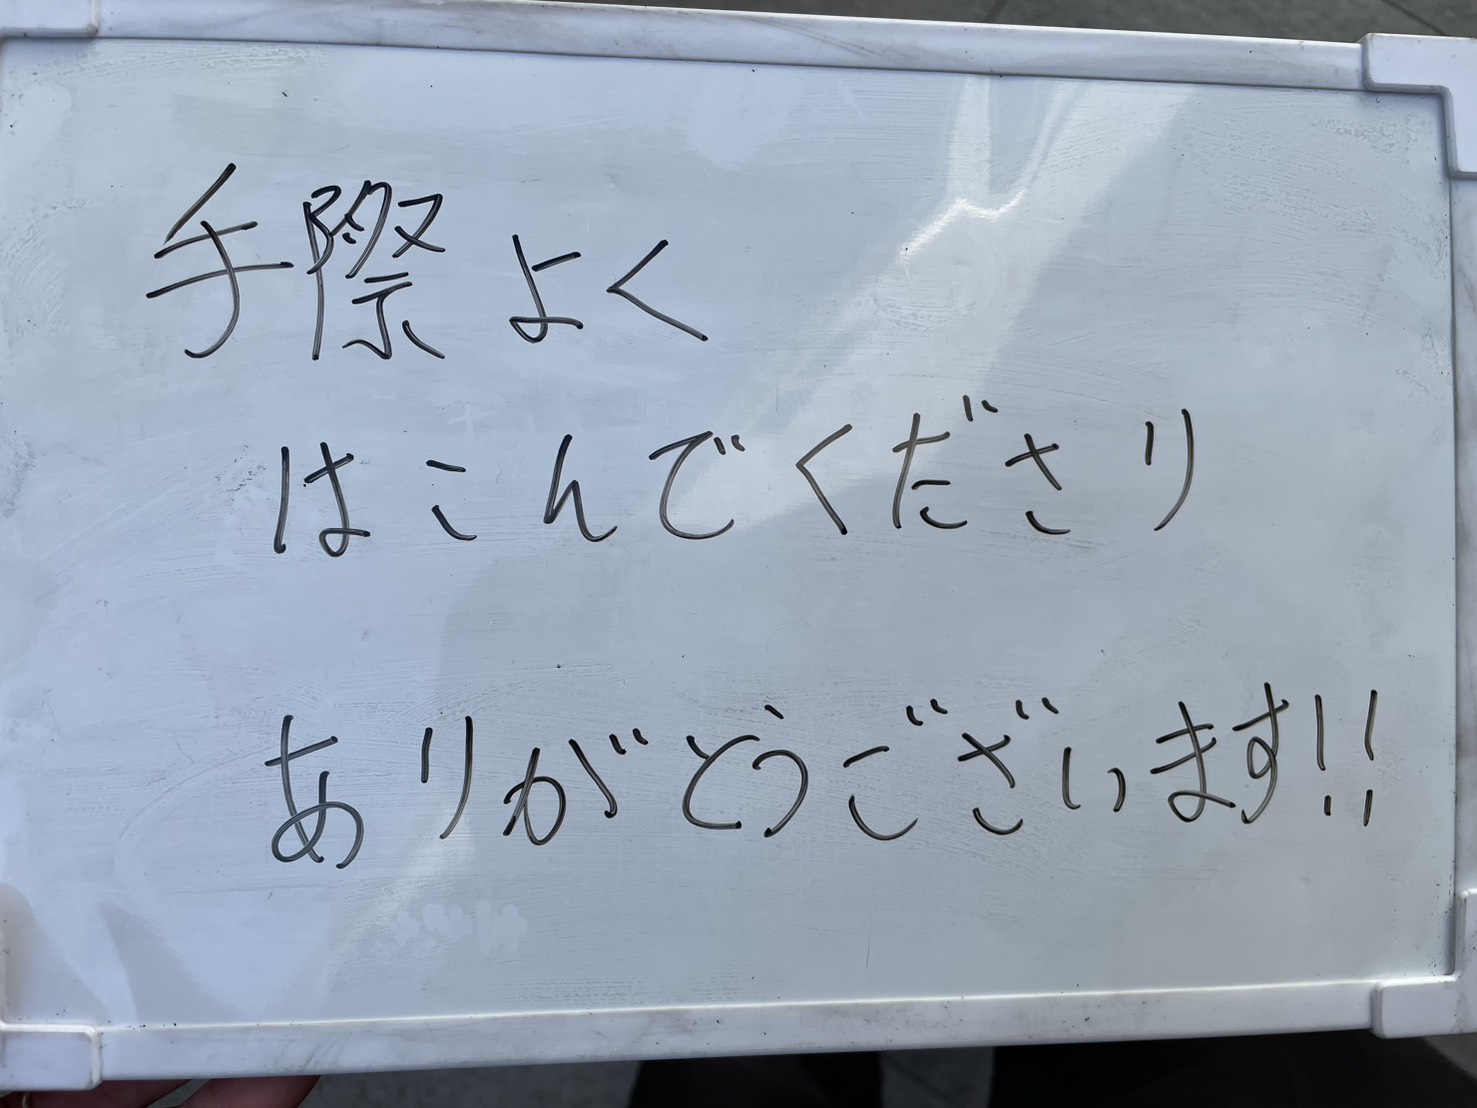 手際よく
はこんでくださり
ありがとうございます!!